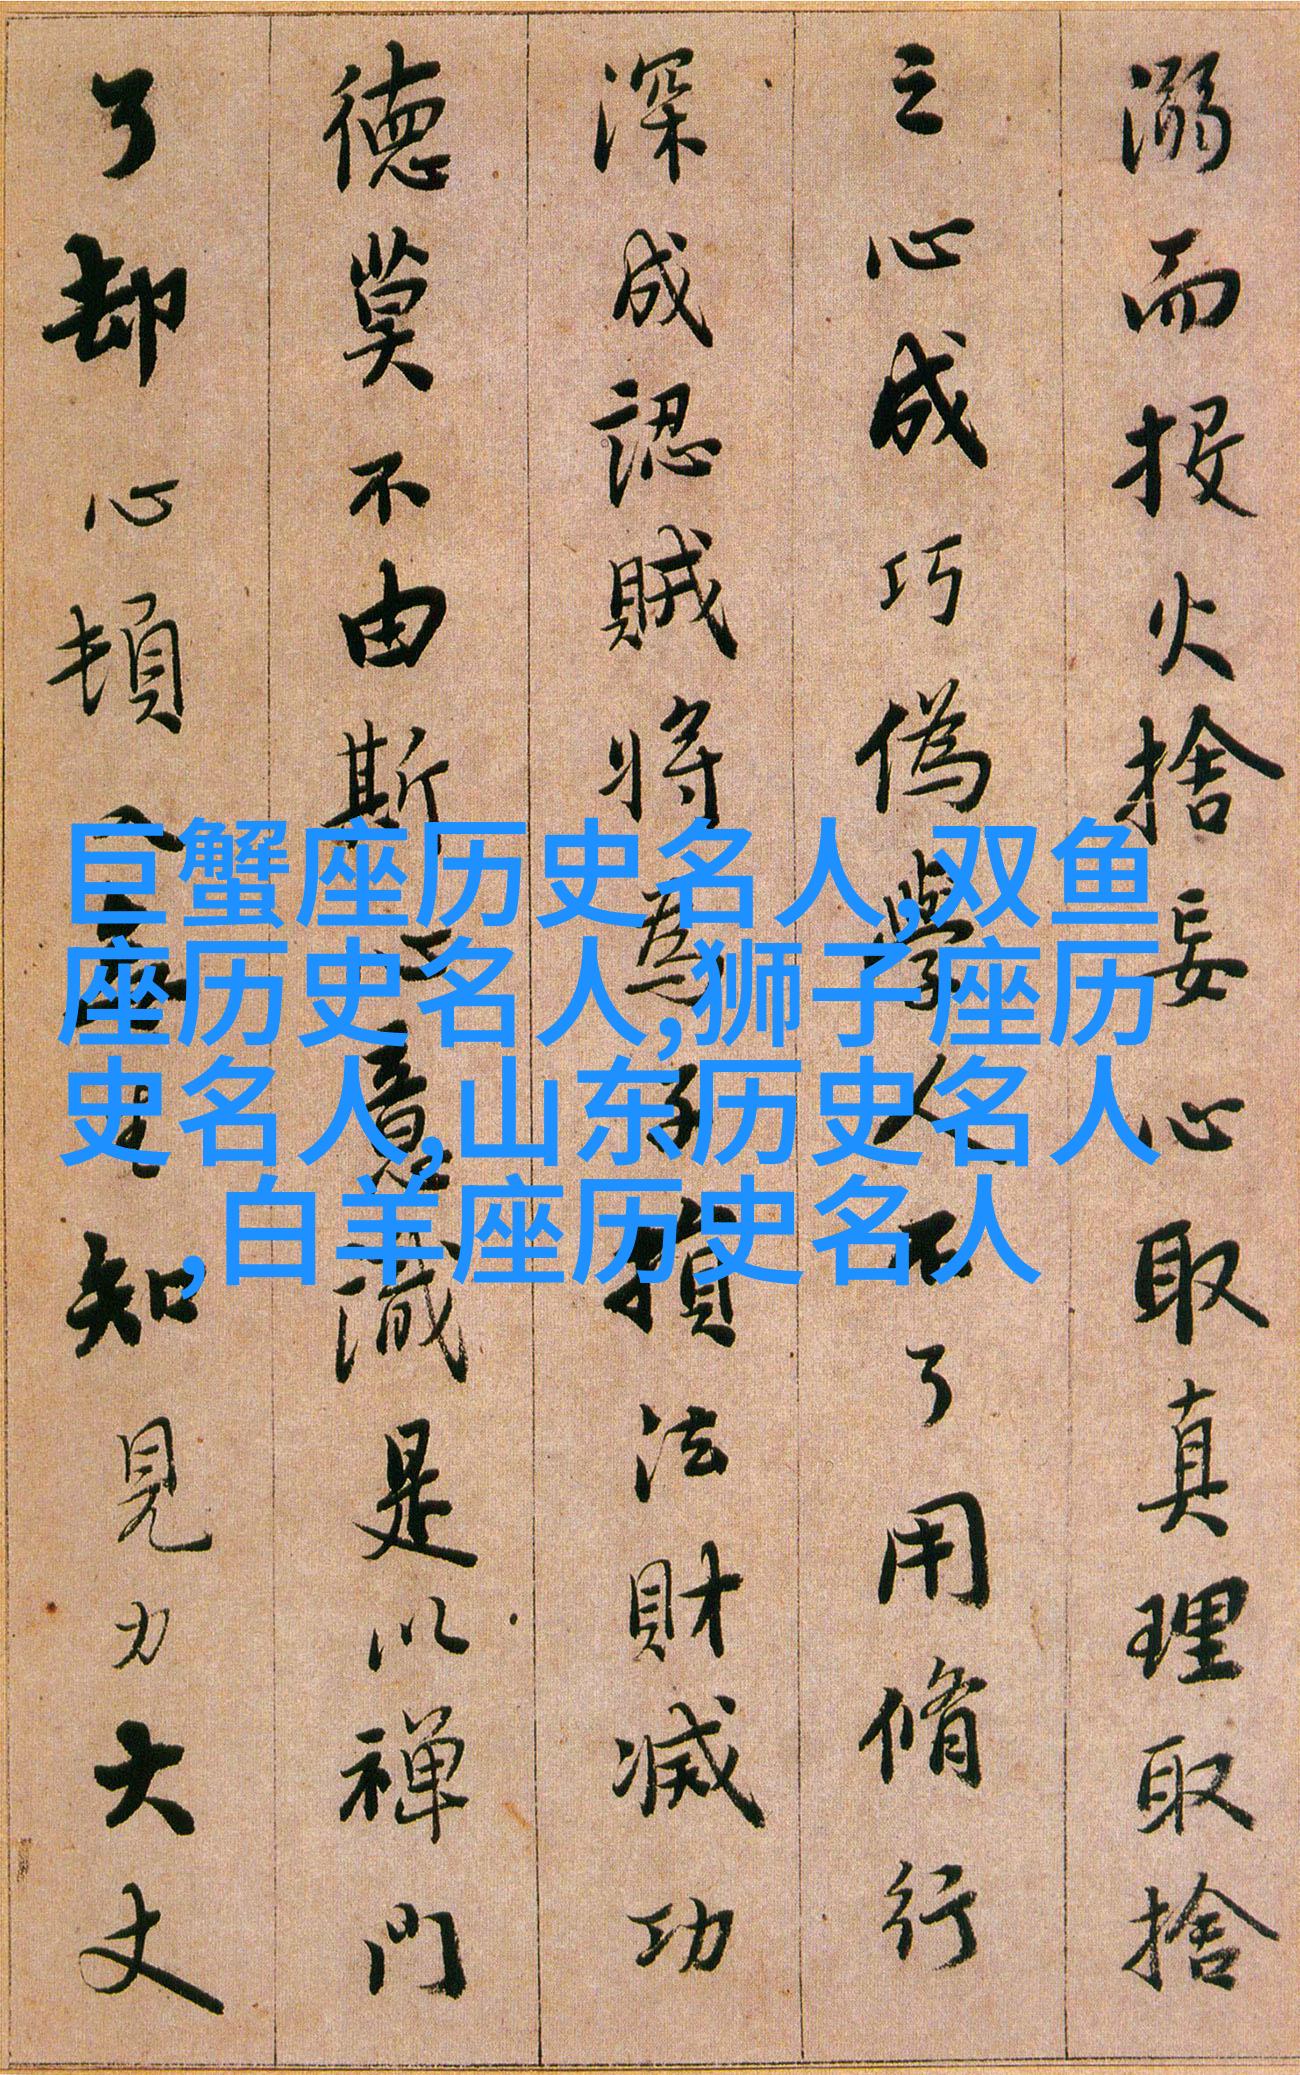 溺而投火捨妄心取真理取捨
之心成巧偽學人不了用脩行
深成認賊將為子損法財滅功
德莫不由斯心意識是以禪門
了却心頓入無生知見力大丈
巨蟹座历史名人,双鱼
座历史名人,狮子座历
史名人,山东历史名人
,白羊座历史名人